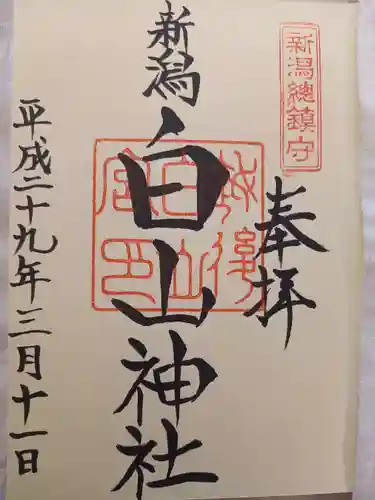 新潟總鎮守
奉拝
新潟
白山神社
越後
白山
宮印
平成二十九年三月十一日